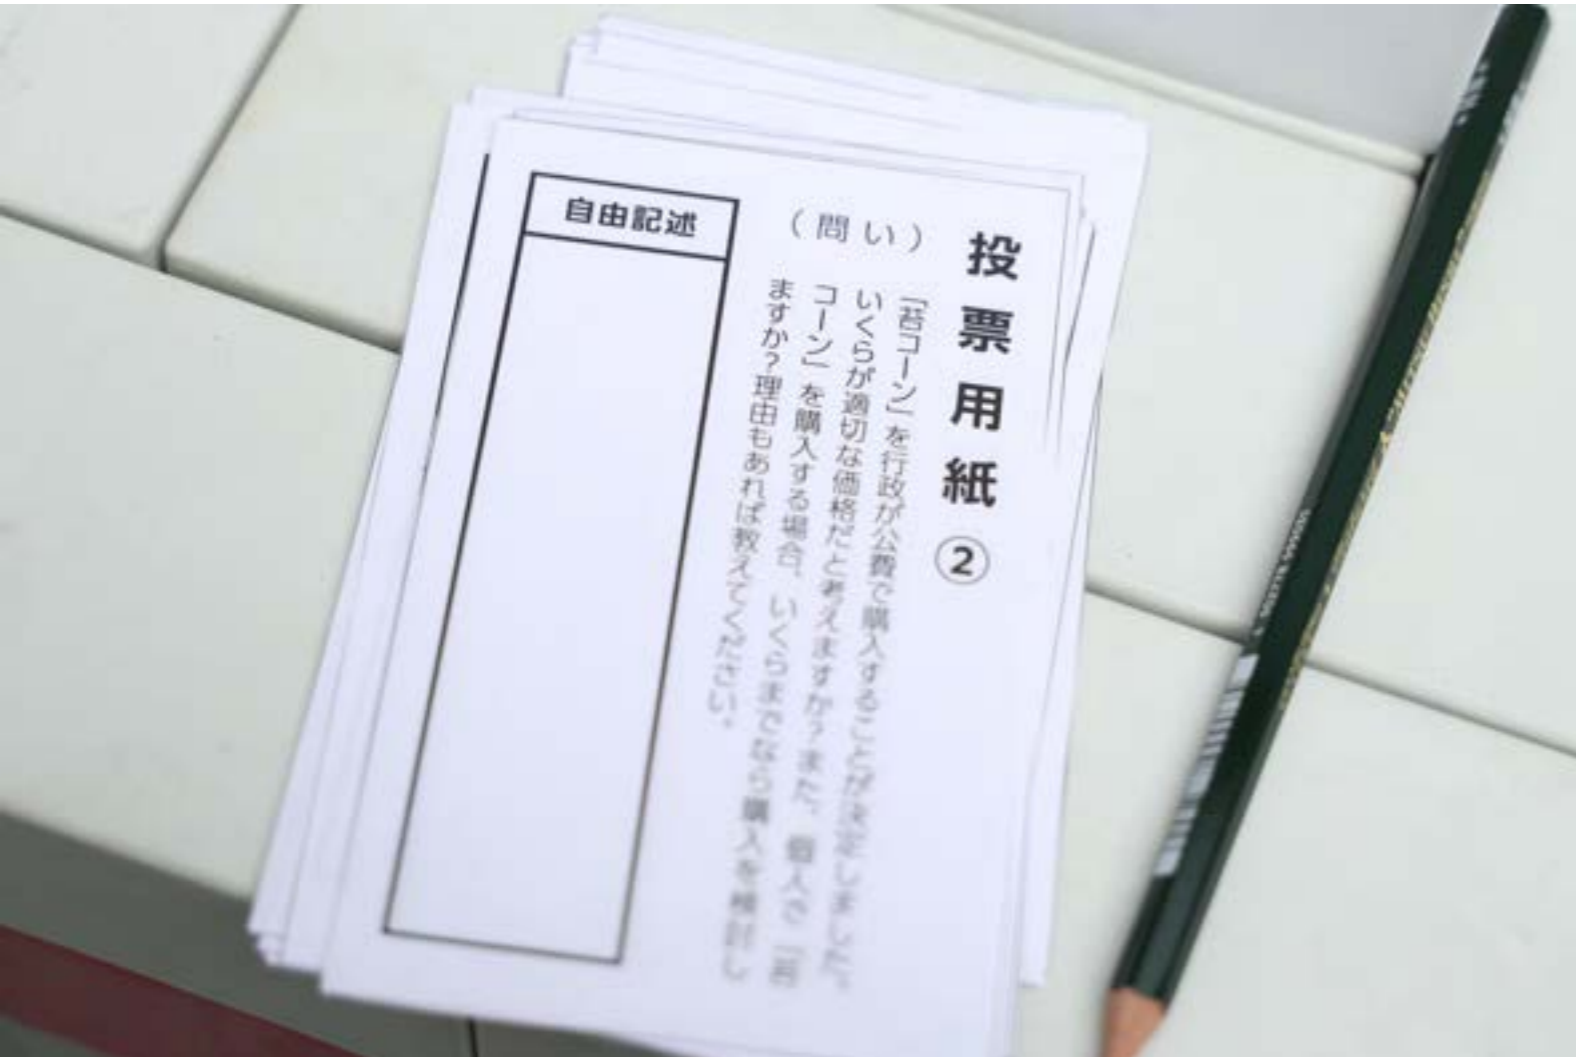 投票用紙②
(問い)
「苔コーン」を行政が公費で購入することが決定しました。
いくらが適切な価格だと考えますか?また、個人で「苔
コーン」を購入する場合、いくらまでなら購入を検討し
ますか?理由もあれば教えてください。
自由記述